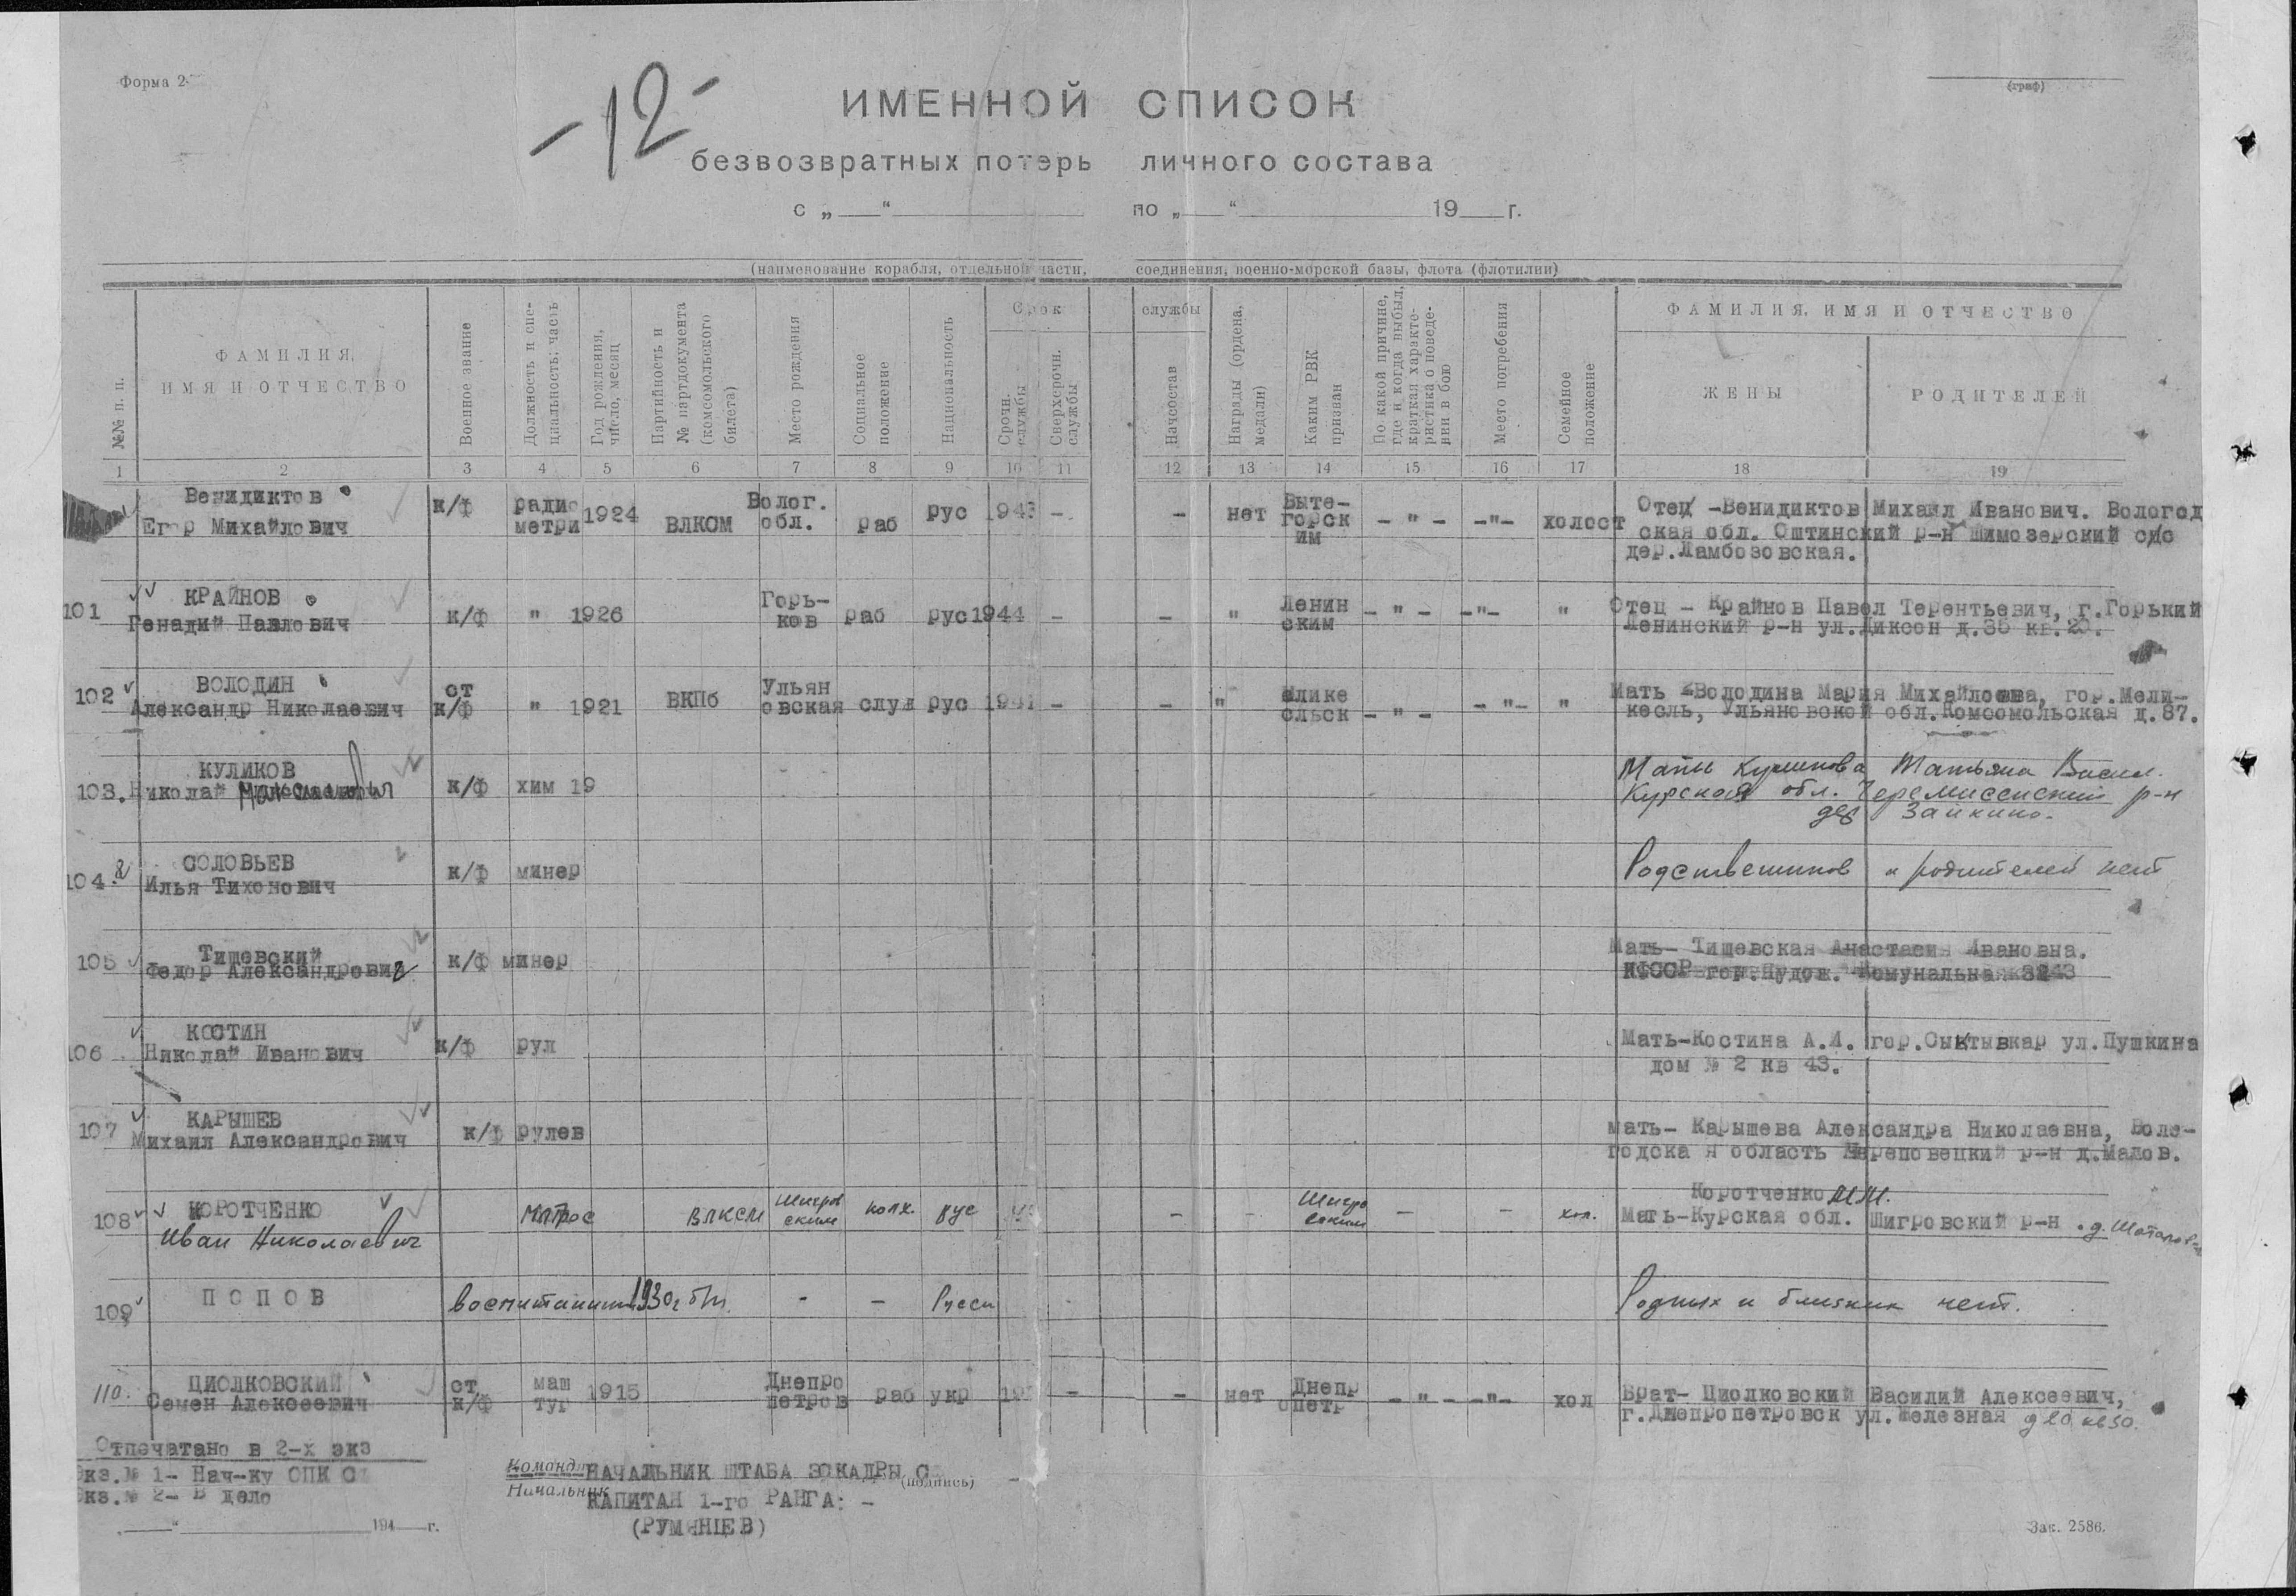 Форма 2
(гриф)
-12-
ИМЕННОЙ СПИСОК
безвозвратных потерь личного состава
с „ “ по „ “ 19 г.
(наименование корабля, отдельной части, соединения, военно-морской базы, флота (флотилии)
№№ п. п.
ФАМИЛИЯ,
ИМЯ И ОТЧЕСТВО
Военное звание
Должность и спе-
циальность; часть
Год рождения,
число, месяц
Партийность и
№ партдокумента
(комсомольского
билета)
Место рождения
Социальное
положение
Национальность
Срок службы
Срочн.
службы
Сверхсрочн.
службы
Начсостав
Награды (ордена,
медали)
Каким РВК
призван
По какой причине,
где и когда выбыл,
краткая характе-
ристика о поведе-
нии в бою
Место погребения
Семейное
положение
ФАМИЛИЯ, ИМЯ И ОТЧЕСТВО
ЖЕНЫ
РОДИТЕЛЕЙ
1 2 3 4 5 6 7 8 9 10 11 12 13 14 15 16 17 18 19
Венидиктов
Егор Михайлович
к/ф
радио
метри
1924
ВЛКОМ
Волог.
обл.
раб
рус
1943 -
- нет
Выте-
горск
им
- " - -"- холост
Отец -Венидиктов Михаил Иванович. Вологод
ская обл. Оштинский р-н Шимозерский с/с
дер.Ламбозовская.
101 КРАЙНОВ
Генадий Павлович
к/ф " 1926
Горь-
ков
раб рус 1944 -
- "
Ленин
ским
- " - -"- "
Отец - Крайнов Павел Терентьевич, г.Горький
Ленинский р-н ул.Диксон д.35 кв.20.
102 ВОЛОДИН
Александр Николаевич
ст
к/ф
" 1921 ВКПб
Ульян
овская
служ рус 1941 -
- "
Мелике
сльск
- " - - "- "
Мать -Володина Мария Михайловна, гор.Мели-
кесль, Ульяновской обл.Комсомольская д.87.
103. КУЛИКОВ
Николай
к/ф хим 19
Мать Куликова Татьяна Васил.
Курская обл. Черемисенский р-н
дер Заикино.
104. СОЛОВЬЕВ
Илья Тихонович
к/ф минер
Родственников и родителей нет
105 Тишевский
Федор Александрович
к/ф минер
Мать- Тишевская Анастасия Ивановна.
КФССР гор.Пудож. Комунальная
106 КОСТИН
Николай Иванович
к/ф рул
Мать-Костина А.И. гор.Сыктывкар ул.Пушкина
дом № 2 кв 43.
107 КАРЫШЕВ
Михаил Александрович
к/ф рулев
мать- Карышева Александра Николаевна, Воло-
годска я область Череповецкий р-н д.Малов.
108 КОРОТЧЕНКО
Иван Николаевич
матрос ВЛКСМ
Шигров
ским
колх. рус
- -
Шигро
вским
- - хол.
Коротченко М.М.
Мать-Курская обл. Шигровский р-н . д.
109 ПОПОВ
воспитанник 1930г б/п. - - Русск
Родных и близких нет.
110. ЦИОЛКОВСКИЙ
Семен Алексеевич
ст
к/ф
маш
тур
1915
Днепро
петров
раб укр -
- нет
Днепр
опетр
- " - -"- хол
Брат- Циолковский Василий Алексеевич,
г.Днепропетровск ул.Железная д 20 кв 50.
Отпечатано в 2-х экз
Экз.№ 1- Нач-ку ОПК С
Экз.№ 2- В дело
„ “ 194 г.
Команд
Начальник
НАЧАЛЬНИК ШТАБА ЭСКАДРЫ С
(подпись)
КАПИТАН 1-го РАНГА: -
(РУМЯНЦЕВ)
Зак. 2586.